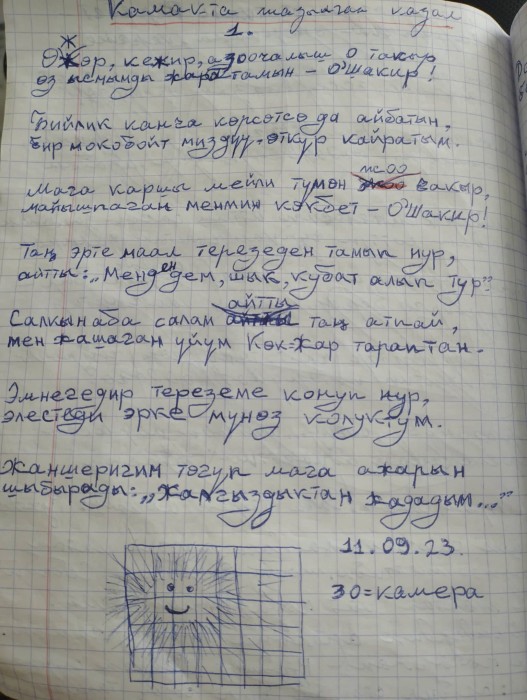 Камакта жазылган казал
1.
Өжөр, кежир, аздочалыш О такыр
өз ысмымды жаратамын – О'Шакир!
Бийлик канча көрсөтсө да айбатын,
бир мокобойт миздүү-өткүр кайратым.
Мага каршы мейли түмөн жоо бакыр,
майышпаган менмин көкбөет – О'Шакир!
Таң эрте маал терезеден тамып нур,
айтты: „Менден дем, шык, кубат алып тур"!
Салкын аба салам айтты таң атпай,
мен жашаган үйүм Көк-Жар тараптан.
Эмнегедир тереземе конуп нур,
элестеди эрке мүнөз колуктум.
Жаншеригим төгүп мага ажарын
шыбырады: „Жалгыздыктан жададым..."
11.09.23.
30=камера